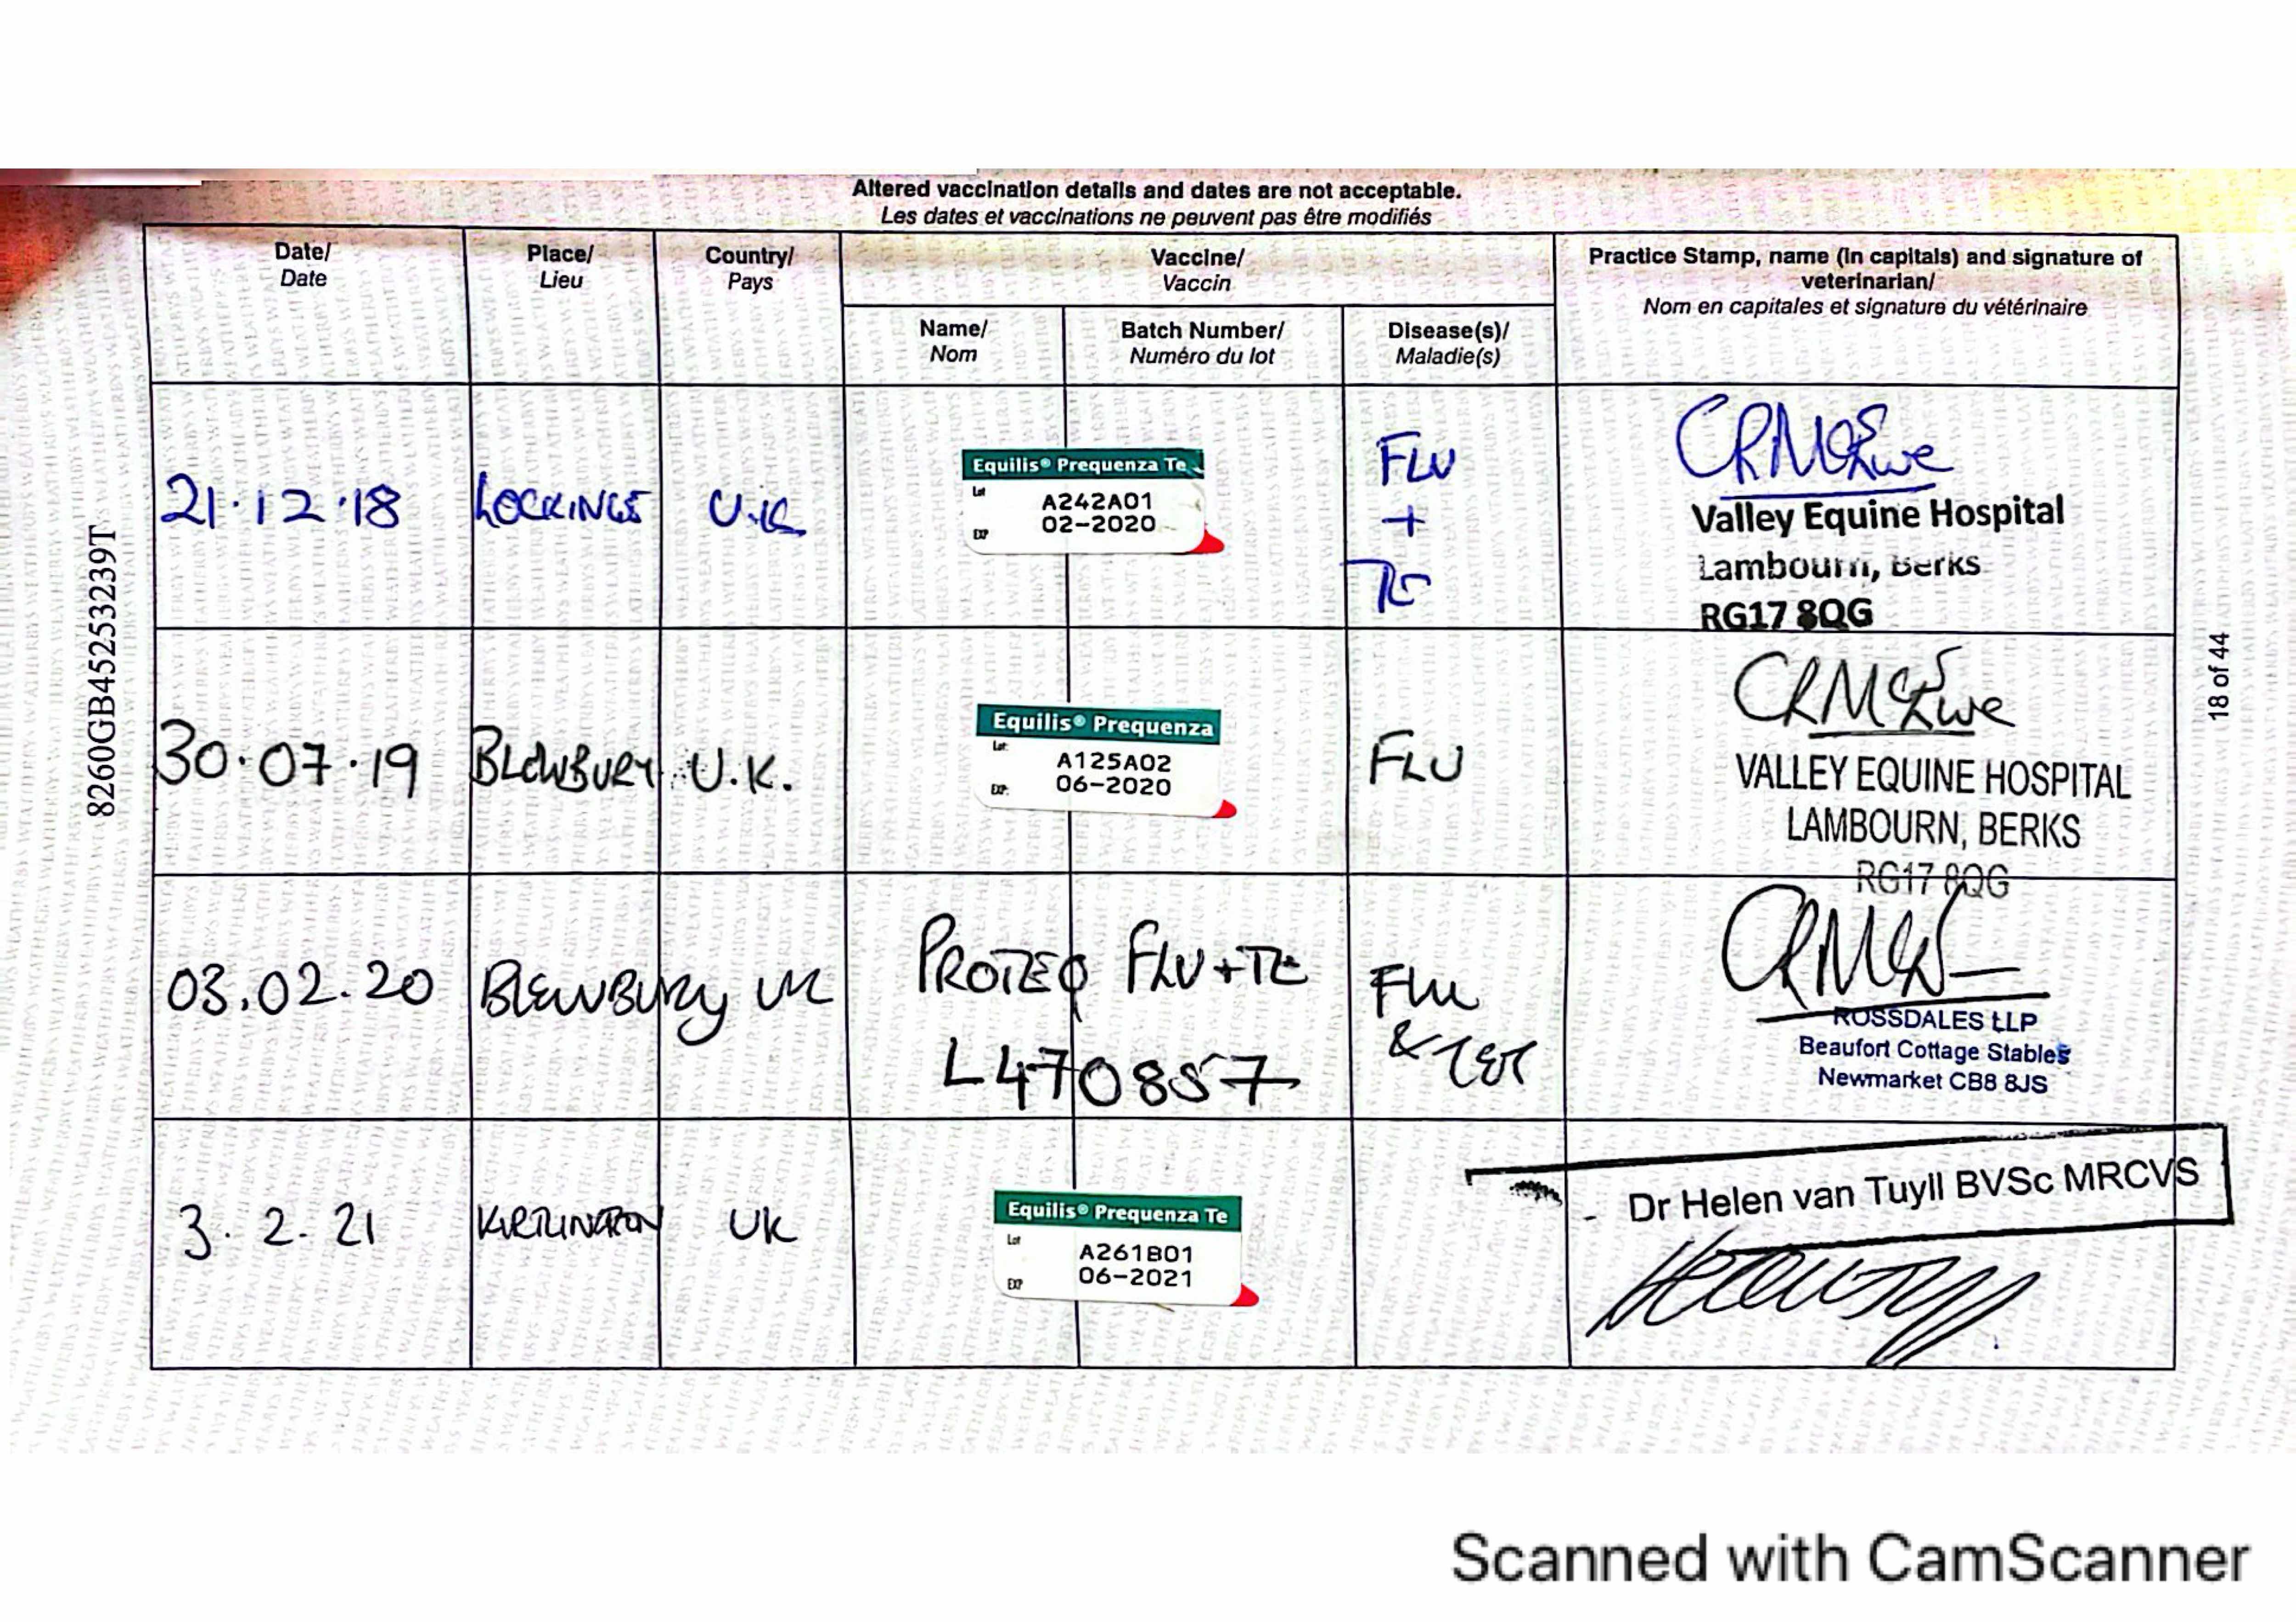 Altered vaccination details and dates are not acceptable.
Les dates et vaccinations ne peuvent pas être modifiés
Date/
Date
Place/
Lieu
Country/
Pays
Vaccine/
Vaccin
Practice Stamp, name (in capitals) and signature of
veterinarian/
Nom en capitales et signature du vétérinaire
Name/
Nom
Batch Number/
Numéro du lot
Disease(s)/
Maladie(s)
21.12.18
LOCKINGE
U.K
Equilis® Prequenza Te
Lot
A242A01
02-2020
EXP
FLU
+
TE
Valley Equine Hospital
Lambourn, Berks
RG17 8QG
30.07.19
BLEWBURY
U.K.
Equilis® Prequenza
Lot:
A125A02
06-2020
EXP:
FLU
VALLEY EQUINE HOSPITAL
LAMBOURN, BERKS
RG17 8QG
03.02.20
BLEWBURY
UK
PROTEQ FLU+TE
L470857
FLU
& TET
ROSSDALES LLP
Beaufort Cottage Stables
Newmarket CB8 8JS
3.2.21
KIRTLINGTON
UK
Equilis® Prequenza Te
Lot
A261B01
06-2021
EXP
Dr Helen van Tuyll BVSc MRCVS
8260GB45253239T
18 of 44
Scanned with CamScanner